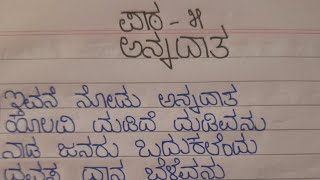 ಪಾಠ - ೫
ಅನ್ನದಾತ
ಇವನೆ ನೋಡು ಅನ್ನದಾತ
ಹೊಲದಿ ದುಡಿದೆ ದುಡಿವನು
ನಾಡ ಜನರು ಬದುಕಲೆಂದು
ಧಾನ್ಯ ಬೆಳೆವನು